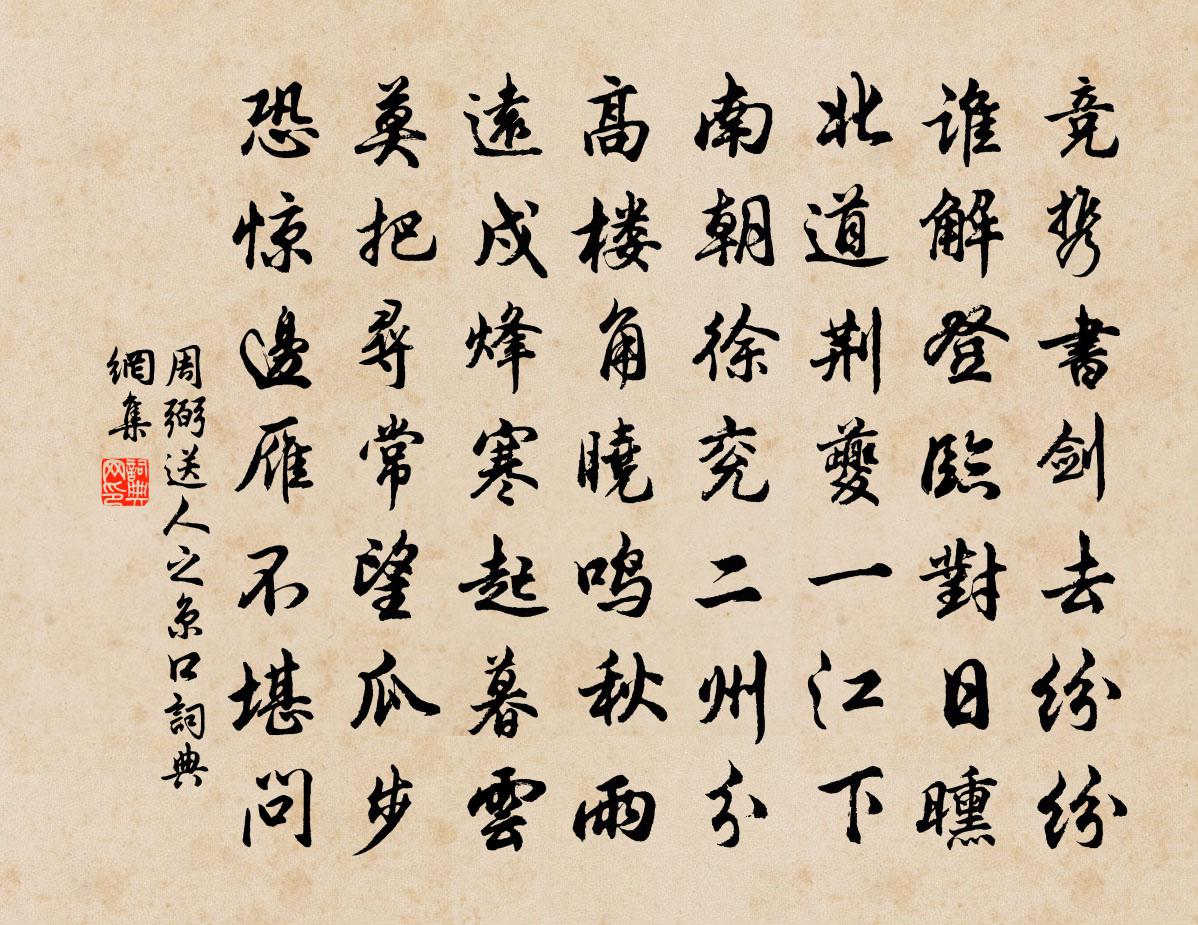 竞携書剑去纷纷
谁解登臨對日曛
北道荆夔一江下
南朝徐兖二州分
高楼角曉鸣秋雨
遠戍烽寒起暮雲
莫把尋常望瓜步
恐惊邊雁不堪问
周弼送人之京口詞典
網集
詞典
网印